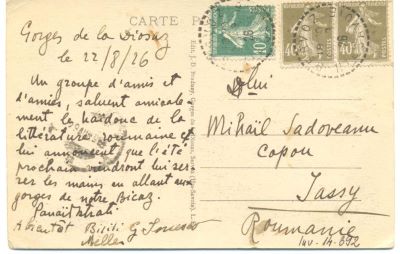 CARTE P
Gorges de la Diosaz
le 22/8/26
Un groupe d'amis et
d'amies, saluent amicale
ment le hardouc de la
littérature roumaine et
lui annoncent que l'été
prochain viendront lui ser
rer les mains en allant aux
gorges de notre Bicaz.
Panaït Istrati
A bientôt Bilili G Ionescu
40
40
10
Mihaïl Sadoveanu
Copou
Jassy
Roumanie
Inv. 14.392